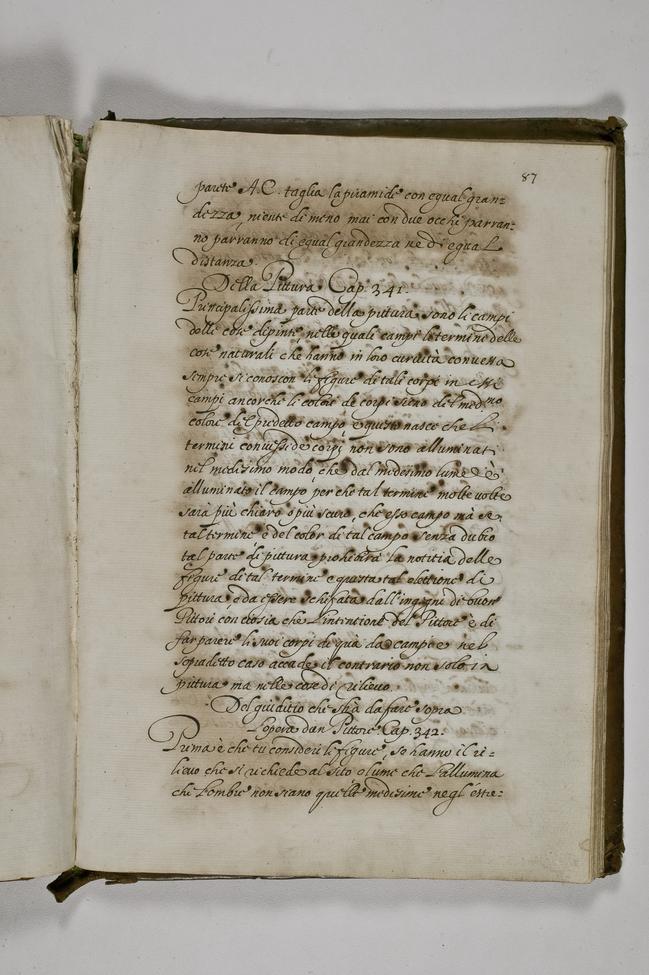 87
parete A.C. taglia la piramide con equal gran=
dezza, niente di meno mai con due occhi parran=
no parranno di equal grandezza ne di equal
distanza
Della Pittura Cap. 341.
Principalissima parte della pittura sono li campi
delle cose dipinte, nelle quali campi le termine delle
cose naturali che hanno in loro curuità conuessa
sempre si conoscon le figure di tali corpi in essi
campi ancorche li colori de corpi sieno del med.mo
colore del predetto campo e questo nasce che li
termini conuessi de corpi non sono alluminati
nel medisimo modo, che dal medesimo lume è
alluminato il campo, perche tal termine molte volte
sarà più chiaro ò più scuro, che esso campo mà se
tal termine è del color di tal campo senza dubio
tal parte di pittura prohibirà la notitia delle
figure di tal termine e questa tal elettione di
pittura, è da essere schifata dall'ingegni de buon
Pittori con cio sia che l'intentione del Pittore è di
far parere li suoi corpi di quà da campi e nel
sopradetto caso accade il contrario non solo in
pittura ma nelle cose di rilieuo
Del giuditio che s'hà da fare sopra
l'opera d'un Pittore Cap. 342.
Prima è che tu consideri le figure, se hanno il ri=
lieuo che si richiede al sito o lume che l'allumina
che l'ombre non siano quelle medesime negl'estre=